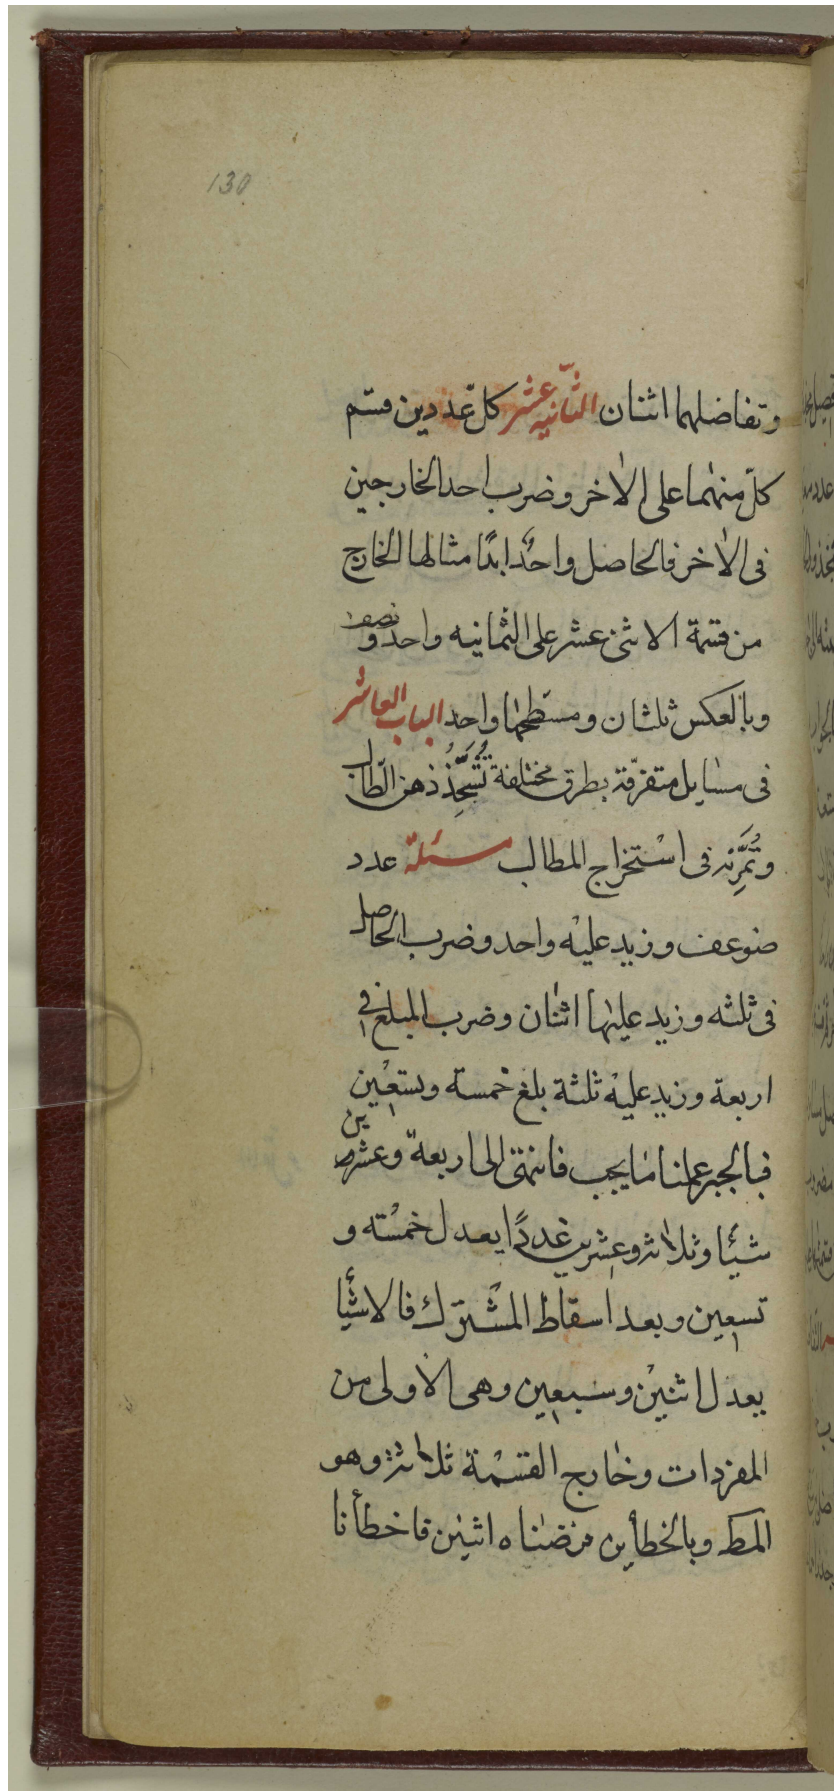 130
وتفاضلهما اثنان الثّانيه عشر كلّ عددين قسّم
كلّ منهما على الاٰخر وضرب احد الخارجين
فى الاٰخر فالحاصل واحدٌ ابدًا مثالها الخارج
من قسمة الاثنى عشر على الثمانيه واحد ونصف
وبالعكس ثلثان ومسطّحهما واحد الباب العاشر
فى مسايل متفرّقة بطرق مختلفة تُشَحِّذُ ذهن الطّالب
وتُمَرِّنه فى استخراج المطالب مسئلة عدد
ضوعف وزيد عليه واحد وضرب الحاصل
فى ثلثه وزيد عليها اثنان وضرب المبلغ فى
اربعة وزيد عليه ثلثة بلغ خمسة وتسعين
فبالجبر عملنا ما يجب فانتهى الى اربعة وعشرين
شيئا وثلاثة وعشرين عددًا يعدل خمسته و
تسعين وبعد اسقاط المشترك فالاشيأ
يعدل اثنين وسبعين وهى الاولى من
المفردات وخارج القسمة ثلاثة وهو
المط وبالخطأين فرضناه اثنين فاخطأنا